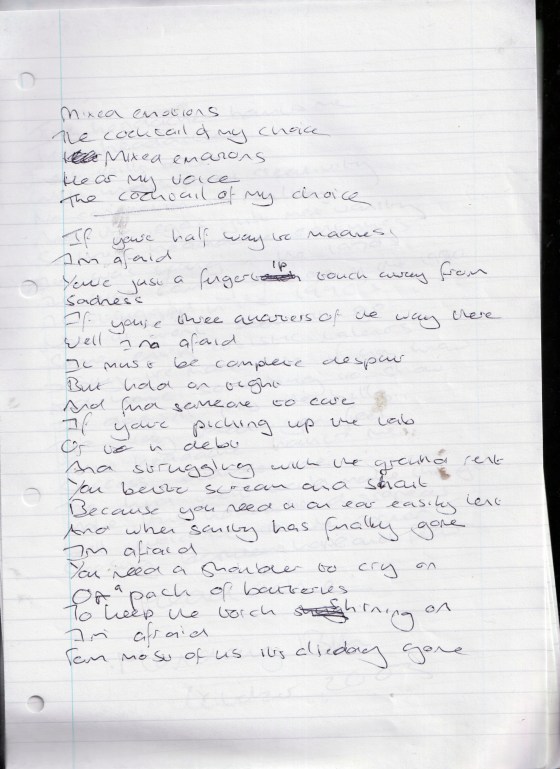 Mixed emotions
The cocktail of my choice
Mixed emotions
Hear my voice
The cocktail of my choice
If you're half way to madness
I'm afraid
You're just a fingertip touch away from
sadness
If you're three quarters of the way there
Well I'm afraid
It must be complete despair
But hold on tight
And find someone to care
If you're picking up the tab
Or in debt
And struggling with the ground rent
You better scream and shout
Because you need a an ear easily lent
And when sanity has finally gone
I'm afraid
You need a shoulder to cry on
Or a pack of batteries
To keep the torch shining on
I'm afraid
For most of us it's already gone